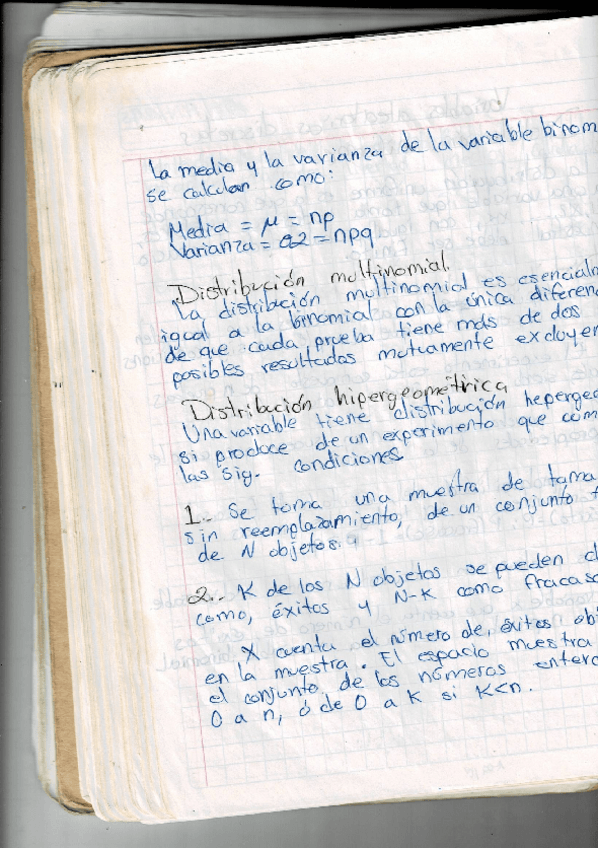 La media y la varianza de la variable binom
se calculan como:
Media = μ = np
Varianza = σ2 = npq
Distribución multinomial.
La distribución multinomial es esencialm
igual a la binomial con la única diferen
de que cada prueba tiene más de dos
posibles resultados mutuamente excluyen
Distribución hipergeométrica
Una variable tiene distribución hepergeo
si produce de un experimento que com
las sig. condiciones
1.. Se toma una muestra de tama
sin reemplazamiento, de un conjunto f
de N objetos.
2.. K de los N objetos se pueden c
como, éxitos y N-K como fracaso
X cuenta el número de, éxitos obt
en la muestra. El espacio muestra
el conjunto de los números entero
0 a n, ó de 0 a K si K<n.